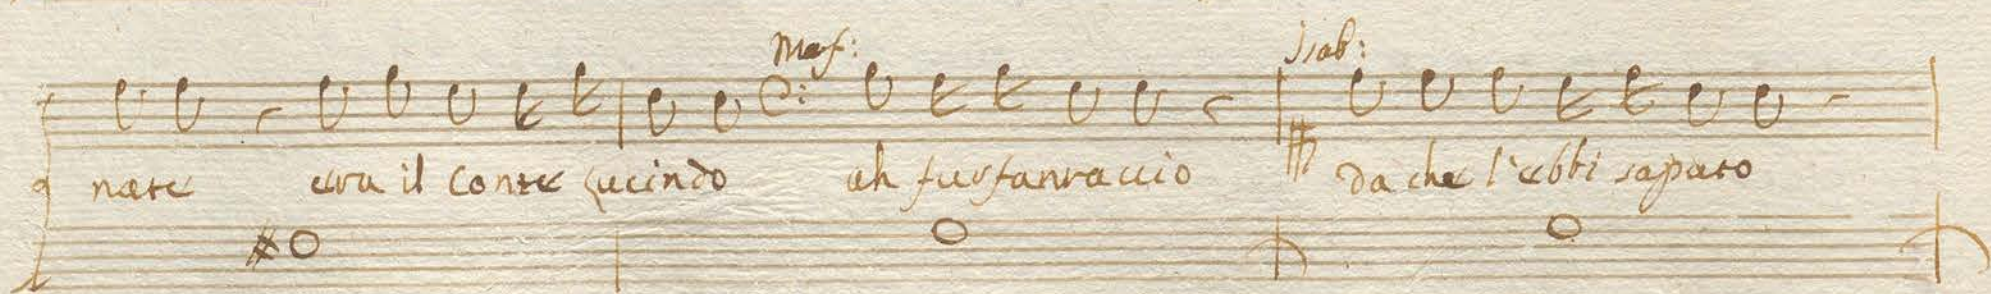 Mas: Isab:
nate era il Conte Lucindo ah furfantaccio da che l'ebbi saputo